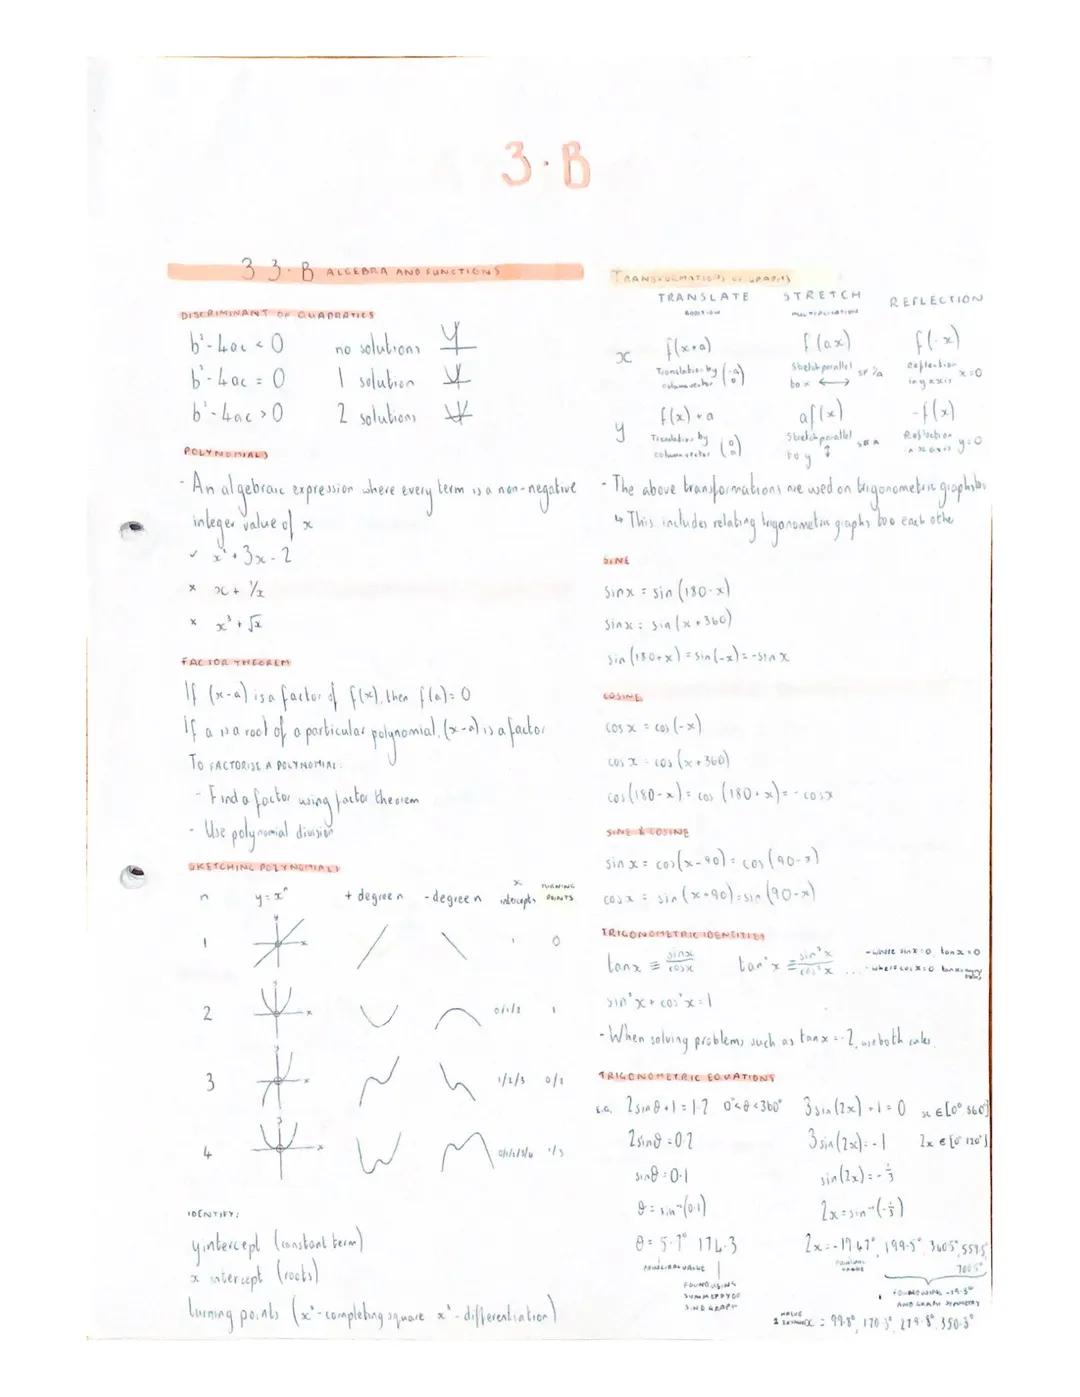 3.B
3 3.B ALGEBRA AND FUNCTIONS
DISCRIMINANT OF QUADRATICS
b²-4ac < 0 no solutions
b²-4ac = 0 1 solution
b²-4ac > 0 2 solutions
POLYNOMIALS
- An algebraic expression where every term is a non-negative
integer value of x
✓ x²+3x-2
x x + 1/x
x x³+√x
FACTOR THEOREM
If (x-a) is a factor of f(x), then f(a)=0
If a is a root of a particular polynomial, (x-a) is a factor
TO FACTORISE A POLYNOMIAL:
- Find a factor using factor theorem
- Use polynomial division
SKETCHING POLYNOMIALS
n y=xⁿ + degree n - degree n x intercepts TURNING POINTS
1 y x 1 0
2 x 0/1/2 1
3 y x 1/2/3 0/2
4 y x 0/1/2/3/4 1/3
IDENTIFY:
y intercept (constant term)
x intercept (roots)
turning points (x²-completing square x³-differentiation)
TRANSFORMATIONS OF GRAPHS
TRANSLATE STRETCH REFLECTION
ADDITION MULTIPLICATION
x f(x+a) f(ax) f(-x)
Translation by column vector (-a 0) Stretch parallel to x SF 1/a Reflection in y axis x=0
y f(x)+a af(x) -f(x)
Translation by column vector (0 a) Stretch parallel to y SF a Reflection x axis y=0
- The above transformations are used on trigonometric graphs too
↳ This includes relating trigonometric graphs too each other
SINE
sinx = sin (180-x)
sinx = sin (x+360)
sin (180+x) = sin(-x) = -sin x
COSINE
cos x = cos (-x)
cos x = cos (x+360)
cos (180-x) = cos (180+x) = - cosx
SINE & COSINE
sin x = cos(x-90) = cos (90-x)
cos x = sin (x+90) = sin (90-x)
TRIGONOMETRIC IDENTITIES
tanx ≡ sinx/cosx tan²x ≡ sin²x/cos²x ... - where sinx=0, tanx=0
- where cosx=0 tanx
sin²x + cos²x = 1
- When solving problems such as tanx = -2, use both rules.
TRIGONOMETRIC EQUATIONS
E.G. 2sinθ+1=1.2 0°<θ<360° 3sin(2x)+1=0 x∈[0° 360°]
2sinθ=0.2 3sin(2x)=-1 2x∈[0° 720°]
sinθ=0.1 sin(2x)=-1/3
θ = sin⁻¹(0.1) 2x=sin⁻¹(-1/3)
θ = 5.7° 174.3 2x=-19.47°, 199.5°, 340.5°, 559.5°
700.5°
PRINCIPAL VALUE PRINCIPAL VALUE
FOUND USING
SYMMETRY OF
SINE GRAPH
FOUND USING -19.5°
AND GRAPH SYMMETRY
x = 99.8°, 170.3°, 279.8°, 350.3°